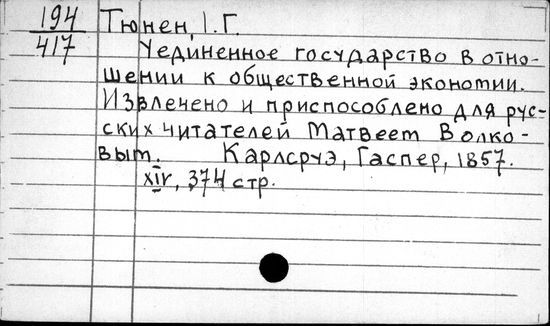 194
417
Тюнен, І. Г.
Уединенное государство в отно-
шении к общественной экономии.
Извлечено и приспособлено для рус-
ских читателей Матвеем Волко-
вым. Карлсруэ, Гаспер, 1857.
XIV, 374 стр.